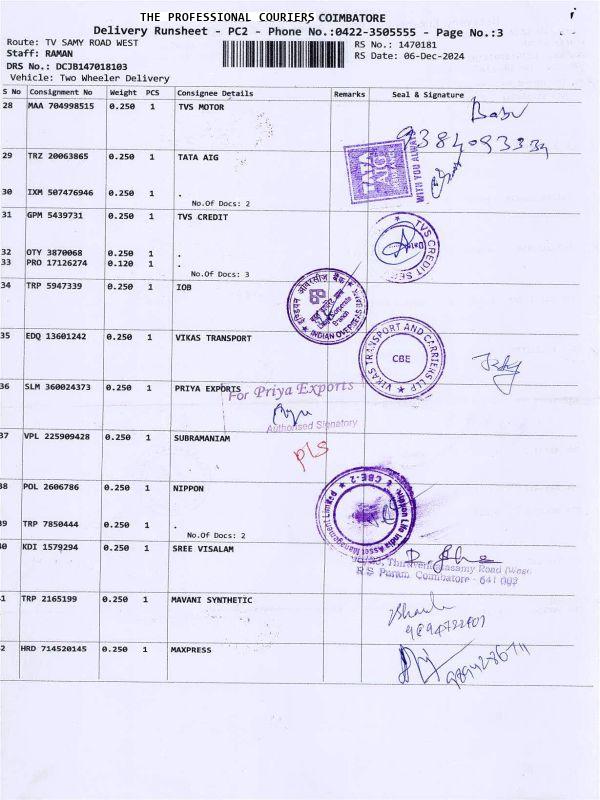 THE PROFESSIONAL COURIERS COIMBATORE
Delivery Runsheet - PC2 - Phone No.:0422-3505555 - Page No.:3
Route: TV SAMY ROAD WEST
RS No.: 1470181
Staff: RAMAN
RS Date: 06-Dec-2024
DRS No.: DCJB147018103
Vehicle: Two Wheeler Delivery
S No Consignment No Weight PCS Consignee Details Remarks Seal & Signature
28 MAA 704998515 0.250 1 TVS MOTOR
Babu
9384093334
29 TRZ 20063865 0.250 1 TATA AIG
TATA AIG
WITH YOU ALWAYS
30 IXM 507476946 0.250 1 .
No.Of Docs: 2
31 GPM 5439731 0.250 1 TVS CREDIT
TVS CREDIT SE
32 OTY 3870068 0.250 1 .
33 PRO 17126274 0.120 1 .
No.Of Docs: 3
34 TRP 5947339 0.250 1 IOB
इंडियन ओवरसीज़ बैंक
Branch
INDIAN OVERSEAS
35 EDQ 13601242 0.250 1 VIKAS TRANSPORT
VIKAS TRANSPORT AND CARRIERS LLP
CBE
36 SLM 360024373 0.250 1 PRIYA EXPORTS
For Priya Exports
Authorised Signatory
37 VPL 225909428 0.250 1 SUBRAMANIAM
Pls
38 POL 2606786 0.250 1 NIPPON
Nippon Life India Asset Management Limited
CBE-2
39 TRP 7850444 0.250 1 .
No.Of Docs: 2
40 KDI 1579294 0.250 1 SREE VISALAM
Thiruvenkatasamy Road (West
R S Puram Coimbatore - 641 002
41 TRP 2165199 0.250 1 MAVANI SYNTHETIC
42 HRD 714520145 0.250 1 MAXPRESS